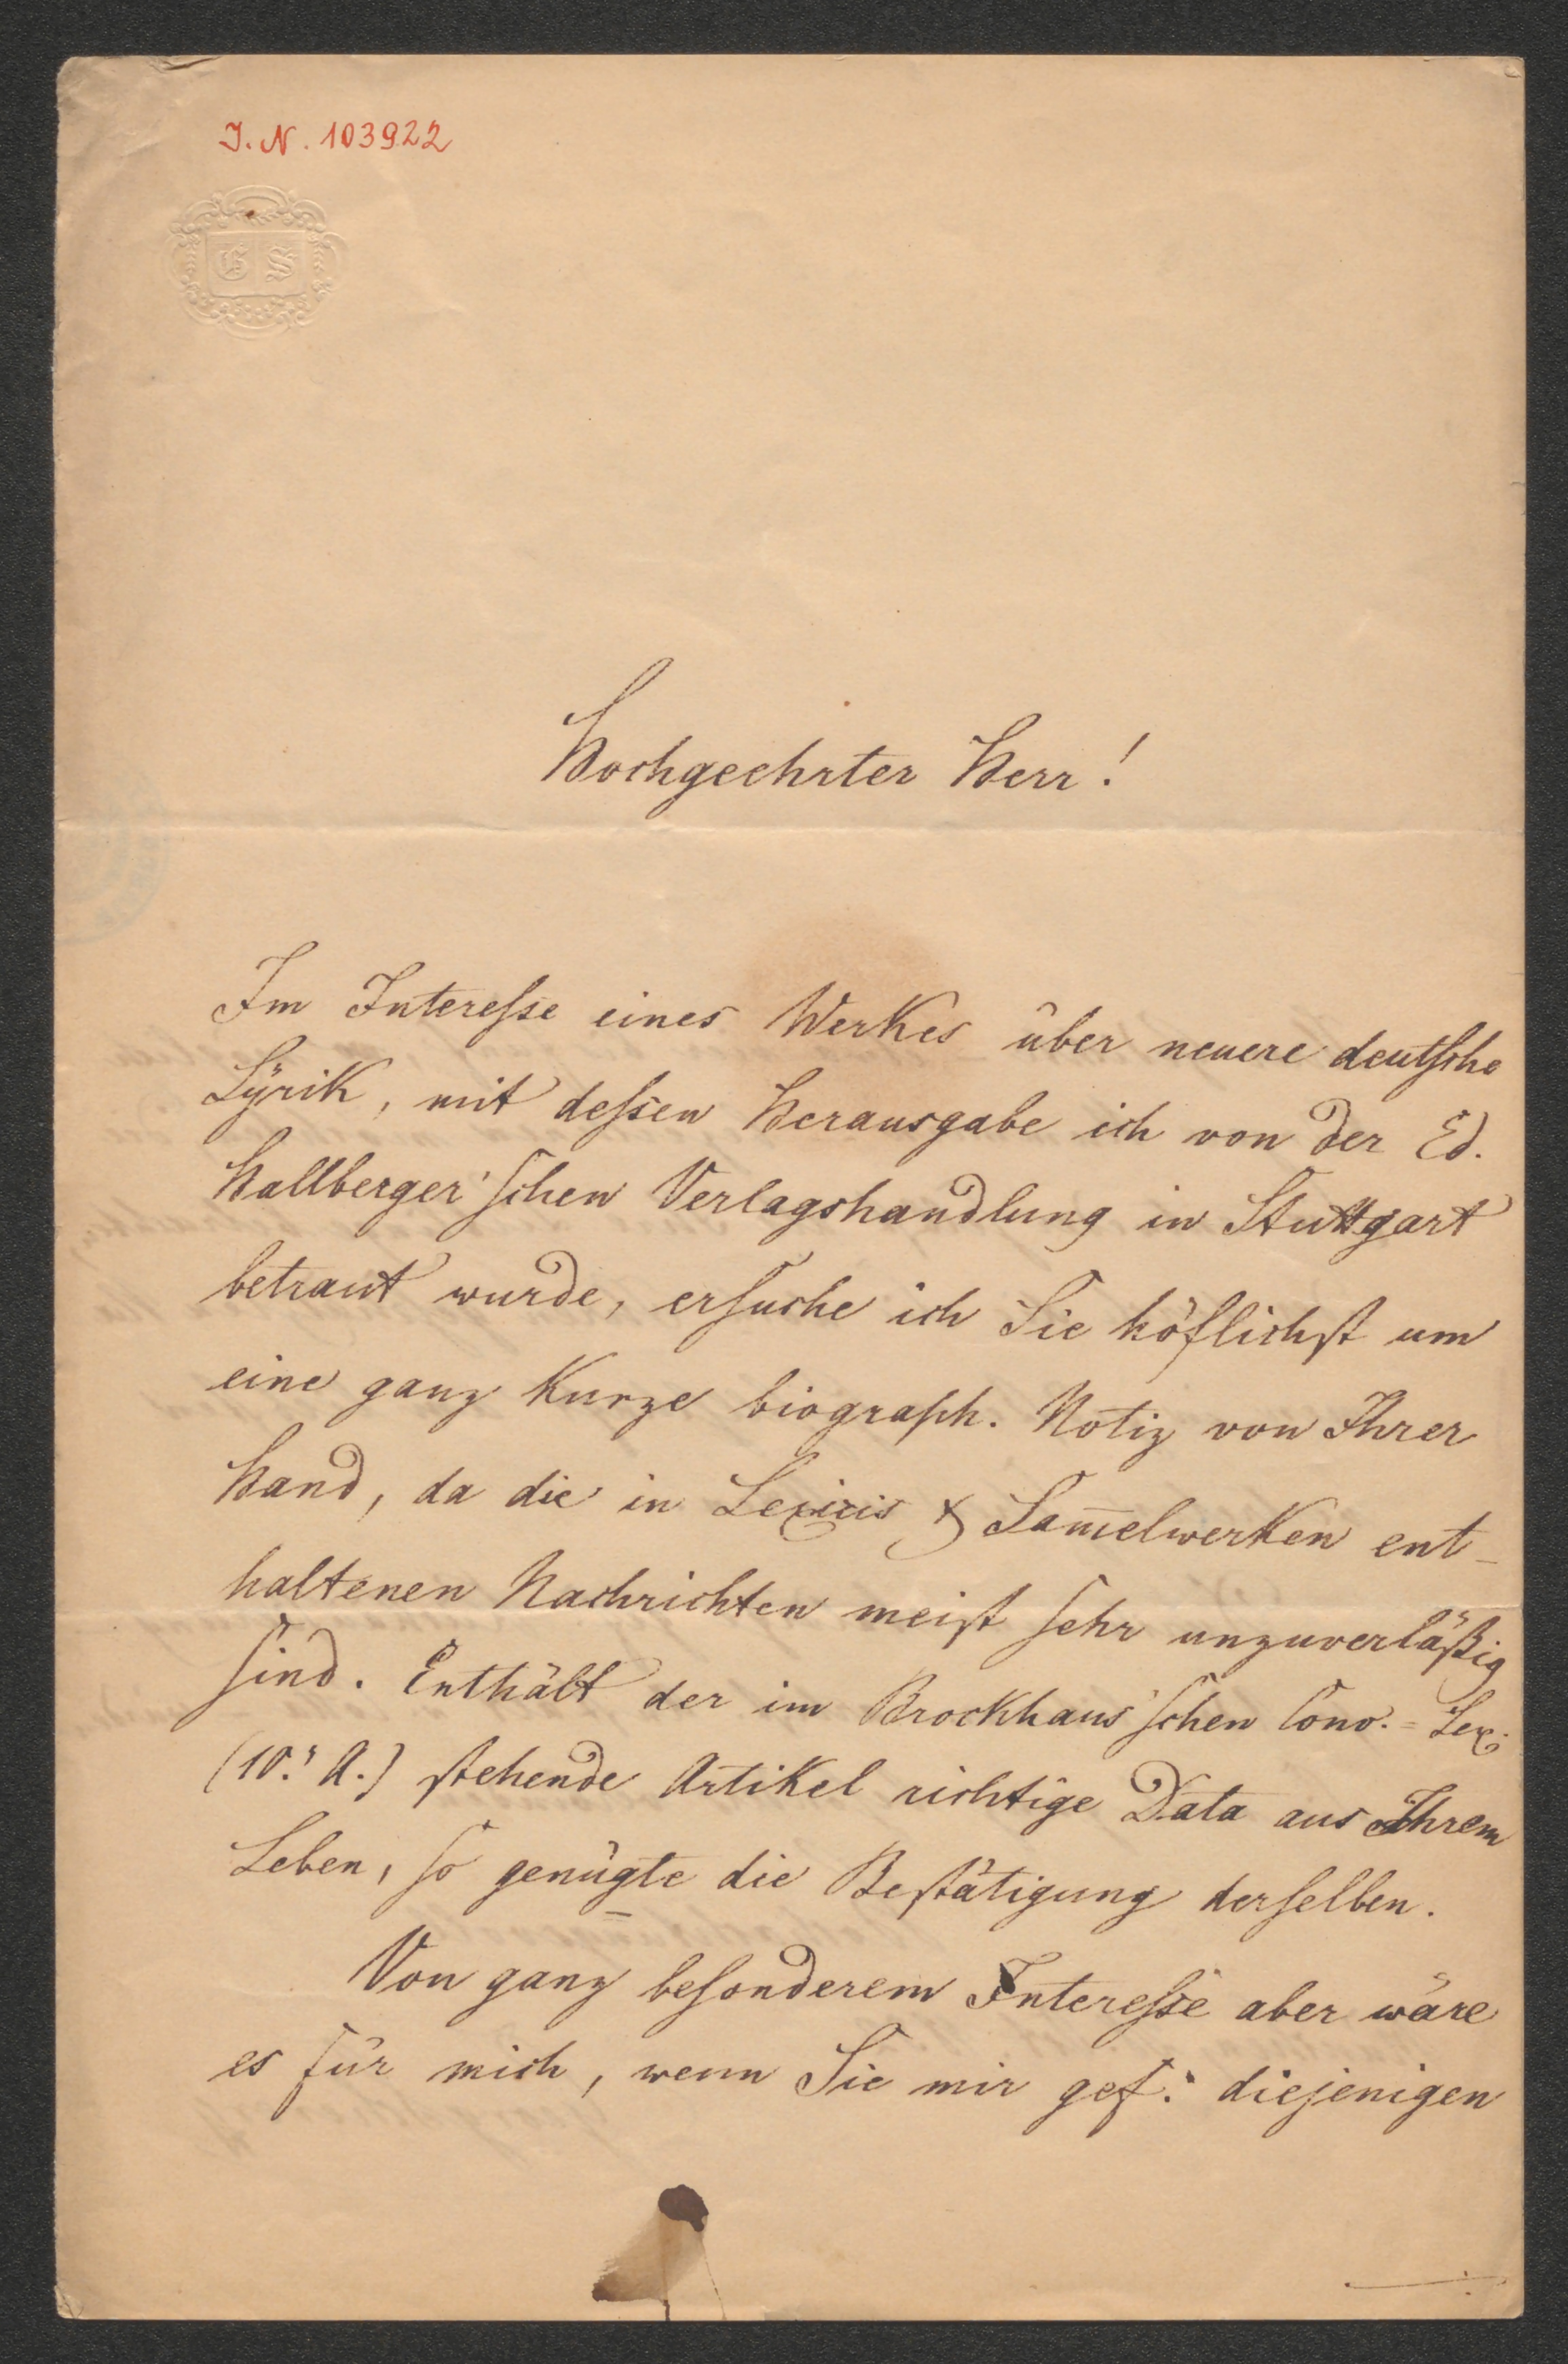 J. N. 103922
E S
Hochgeehrter Herr!
Im Interesse eines Werkes über neuere deutsche
Lÿrik, mit dessen Herausgabe ich von der Ed.
Hallberger'schen Verlagshandlung in Stuttgart
betraut wurde, ersuche ich Sie höflichst um
eine ganz kurze biograph. Notiz von Ihrer
Hand, da die in Lexicis & Sam̅elwerken ent-
haltenen Nachrichten meist sehr unzuverläßig
sind. Enthält der im Brockhaus'schen Conv.-Lex.
(10. A.) stehende Artikel richtige Data aus Ihrem
Leben, so genügte die Bestätigung derselben.
Von ganz besonderem Interesse aber wäre
es für mich, wenn Sie mir gef. diejenigen